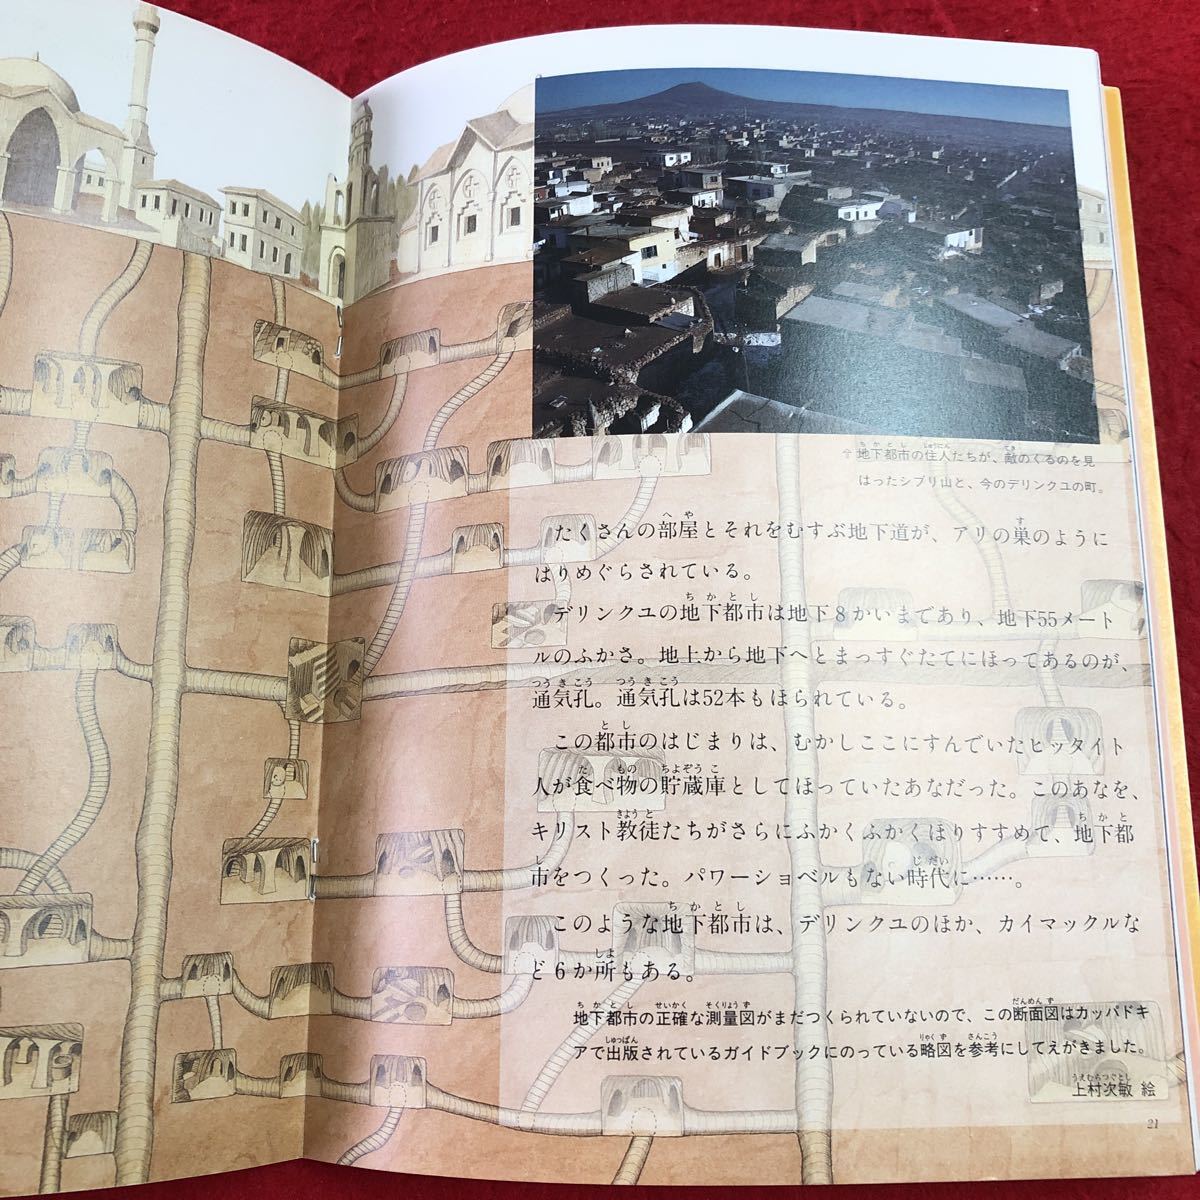 ⇧地下都市の住人たちが、敵のくるのを見
はったシブリ山と、今のデリンクユの町。
たくさんの部屋とそれをむすぶ地下道が、アリの巣のように
はりめぐらされている。
デリンクユの地下都市は地下8かいまであり、地下55メート
ルのふかさ。地上から地下へとまっすぐたてにほってあるのが、
通気孔。通気孔は52本もほられている。
この都市のはじまりは、むかしここにすんでいたヒッタイト
人が食べ物の貯蔵庫としてほっていたあなだった。このあなを、
キリスト教徒たちがさらにふかくふかくほりすすめて、地下都
市をつくった。パワーショベルもない時代に……。
このような地下都市は、デリンクユのほか、カイマックルな
ど6か所もある。
地下都市の正確な測量図がまだつくられていないので、この断面図はカッパドキ
アで出版されているガイドブックにのっている略図を参考にしてえがきました。
上村次敏 絵
21